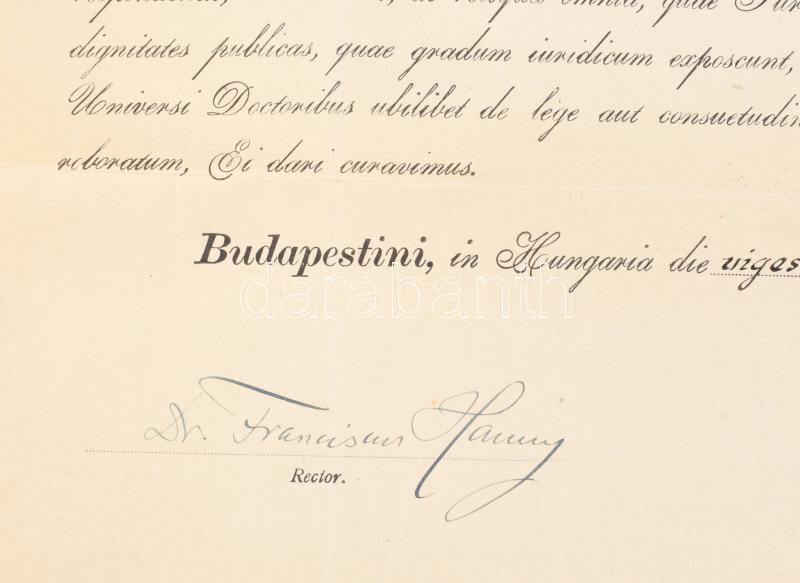 de reliqua omnia, quae
dignitates publicas, quae gradum iuridicum exposcunt,
Universi Doctoribus ubilibet de lege aut
roboratum, Ei dari curavimus.
Budapestini, in Hungaria die viges
darabanth
Dr. Franciscus
Rector.